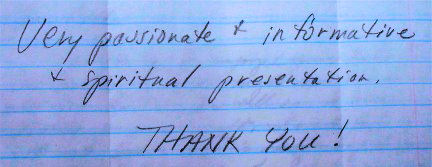 Very passionate + informative
+ spiritual presentation.
THANK YOU!